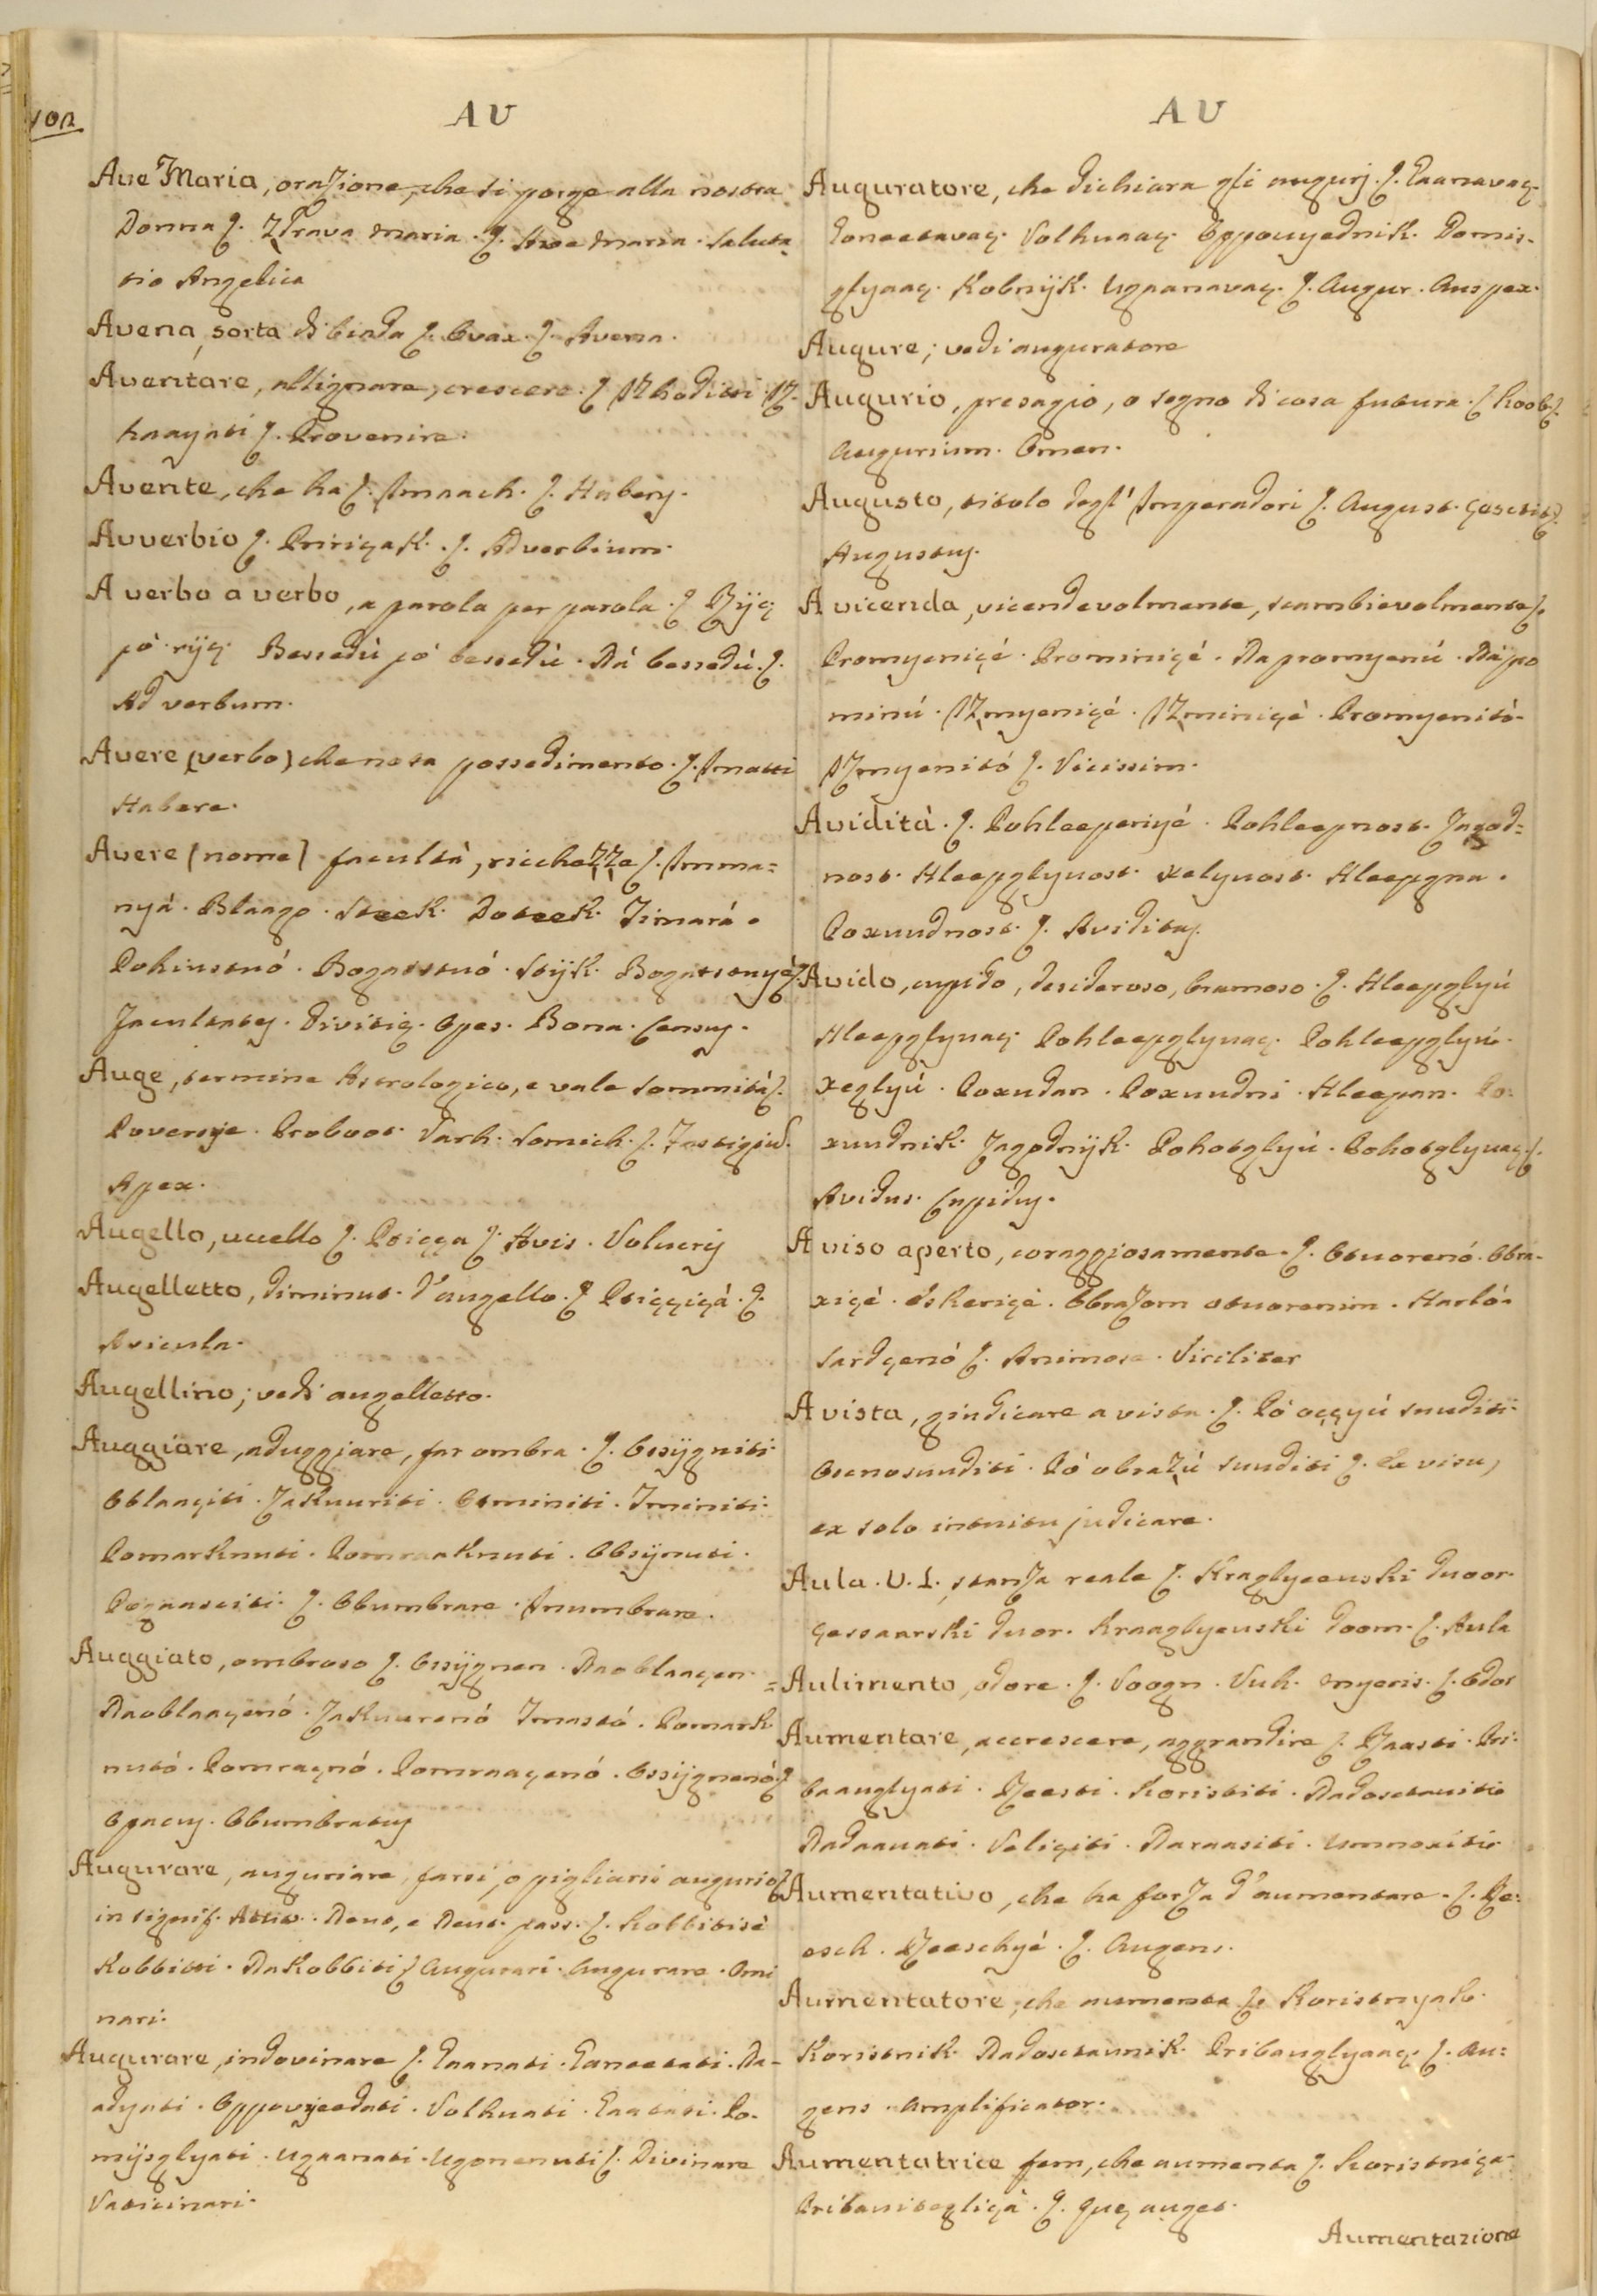 102
AU
Ave Maria, orazione, che si porge alla nostra
Donna ſ. Zdrava Maria. ſ. Ave Maria. Saluta
tio Angelica
Avena, sorta di biada ſ. Ovax. ſ. Avena.
Aventare, allignare, crescere. ſ. Izhoditti. Iz-
haayati ſ. Provenire.
Avente, che ha ſ. Imaach. ſ. Habens.
Avverbio ſ. Pririçak. ſ. Adverbium.
A verbo a verbo, a parola per parola. ſ. Rijç
pò rijç. Bessedù pò bessedù. Ná bessedú. ſ.
Ad verbum.
Avere (verbo) che nota possedimento. ſ. Imatti
Habere.
Avere (nome) facultà, ricchezze ſ. Imma=
nyá. Blaago. Steek. Doteek. Timará.
Pokiustuó. Bogatstuó. Stijk. Bogatstuyé ſ.
Facultates. Divitiç. Opes. Bona. Census.
Auge, termine Astrologico, e vale sommità ſ.
Poversje. Proboot. Varh. Somich. ſ. Fastigiũ.
Apex.
Augello, uccello ſ. Ptiçça ſ. Avis. Volucris
Augelletto, diminut. d'augello. ſ. Ptiççiçá. ſ.
Avicula.
Augellino; vedi augelletto.
Auggiare, aduggiare, far ombra. ſ. Ossijgniti.
Oblaaçiti. Zakuuriti. Otminiti. Tmeniti.
Pomarknuti. Pomraaknuti. Obsijnuti.
Pognaasciti. ſ. Obumbrare. Inumbrare.
Auggiato, ombroso ſ. Ossijgnen. Naoblaaçen.
Naoblaaçenó. Zakuurenó Tmastó. Pomark
nutó. Pomraçnó. Pomraaçenó. Ossijgnenó ſ
Opacus. Obumbratus
Augurare, auguriare, farsi, o pigliarsi augurio ſ
in signif. Attiv. Neut, e Neut. pass. ſ. Kobbitisé
Kobbitti. Nakobbiti ſ Augurari. Augurare. Omi
nari.
Augurare, indovinare ſ. Gaanati. Gonetati. Na-
adyati. Oppovijeedati. Volhuati. Gaatati. Po-
mijsglyati. Ugaanati. Ugonenuti ſ. Divinare
Vaticinari.
AU
Auguratore, che dichiara gli augurj. ſ. Gaanavaç.
Goneetavaç. Volhuaaç. Oppouyednik. Domis-
glyaaç. Kobnijk. Ugaanavaç. ſ. Augur. Auspex.
Augure; vedi auguratore
Augurio, presagio, o segno di cosa futura. ſ Koob ſ.
Augurium. Omen.
Augusto, titolo degl' Imperadori ſ. August. çestit ſ.
Augustus.
A vicenda, vicendevolmente, scambievolmente ſ.
Promyeniçé. Prominiçé. Na promyenú. Ná po
minú. Izmyeniçé. Izminiçé. Promyenitó.
Izmyenitó ſ. Vicissim.
Avidità. ſ. Pohleeperiyé. Pohleepnost. Jagod=
nost. Hleepglyuost. Xelyuost. Hleepgna.
Poxuudnost. ſ. Aviditas.
Avido, cupido, desideroso, bramoso. ſ. Hleepglyú
Hleepglyuaç. Pohleepglyuaç. Pohleepglyú.
Xeglyú. Poxudan. Poxuudni. Hleepan. Po-
xuudnik. Jagodnijk. Pohotglyú. Pohotglyuaç ſ.
Avidus. Cupidus.
A viso aperto, coraggiosamente. ſ. Otuorenó. Obra-
xiçé. Iskeriçé. Obrazom otuorenim. Harló.
Sardçenó ſ. Animose. Viriliter
A vista, giudicare a vista. ſ. Pó oççyú suuditi.
Ocenosuuditi. Pó obrazú suuditi ſ. Ex visu,
ex solo intuitu judicare.
Aula. V. L. stanza reale ſ. Kraglyeeuski duoor.
çessaarski duor. Kraaglyeuski doom. ſ. Aula
Aulimento, odore. ſ. Voogn. Vuh. Myeris. ſ. Odor
Aumentare, accrescere, aggrandire ſ. Rzaasti. Pri-
baauglyati. Rzeesti. Koristiti. Nadosctauiti
Nadaauati. Veliçiti. Naraasiti. Umnoxiti.
Aumentativo, che ha forza d'aumentare. ſ. Rze-
esch. Rzeeschyé. ſ. Augens.
Aumentatore, che aumenta ſ. Koristnyak.
Koristnik. Nadosctaunik. Pribauglyaaç. ſ. Au=
gens. Amplificator.
Aumentatrice fem, che aumenta ſ. Koristniça.
Pribauitegliçá. ſ. Quç auget.
Aumentazione